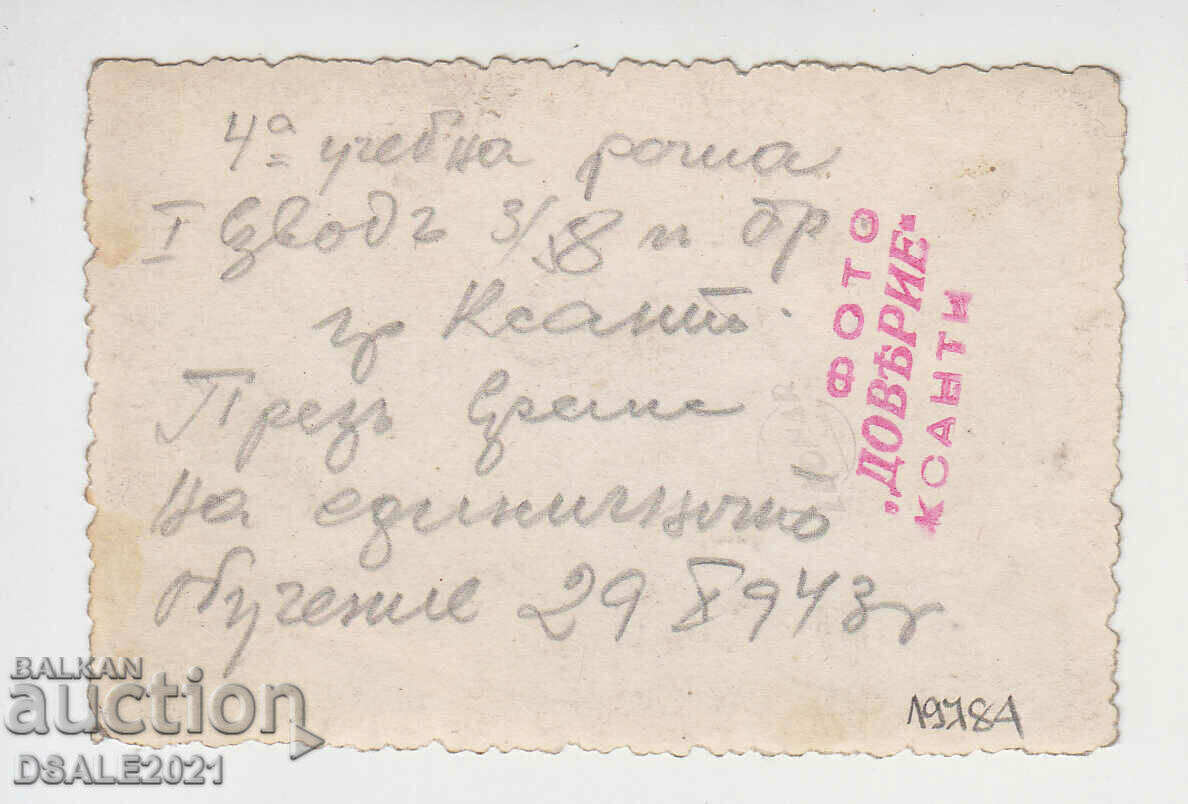 4а учебна рота
I взводъ 3/58 п др
гр Ксанти
Презъ време
на единичното
обучение 29 X 943 г
ФОТО
"ДОВѢРИЕ"
КСАНТИ
19784
BALKAN
auction
DSALE2021